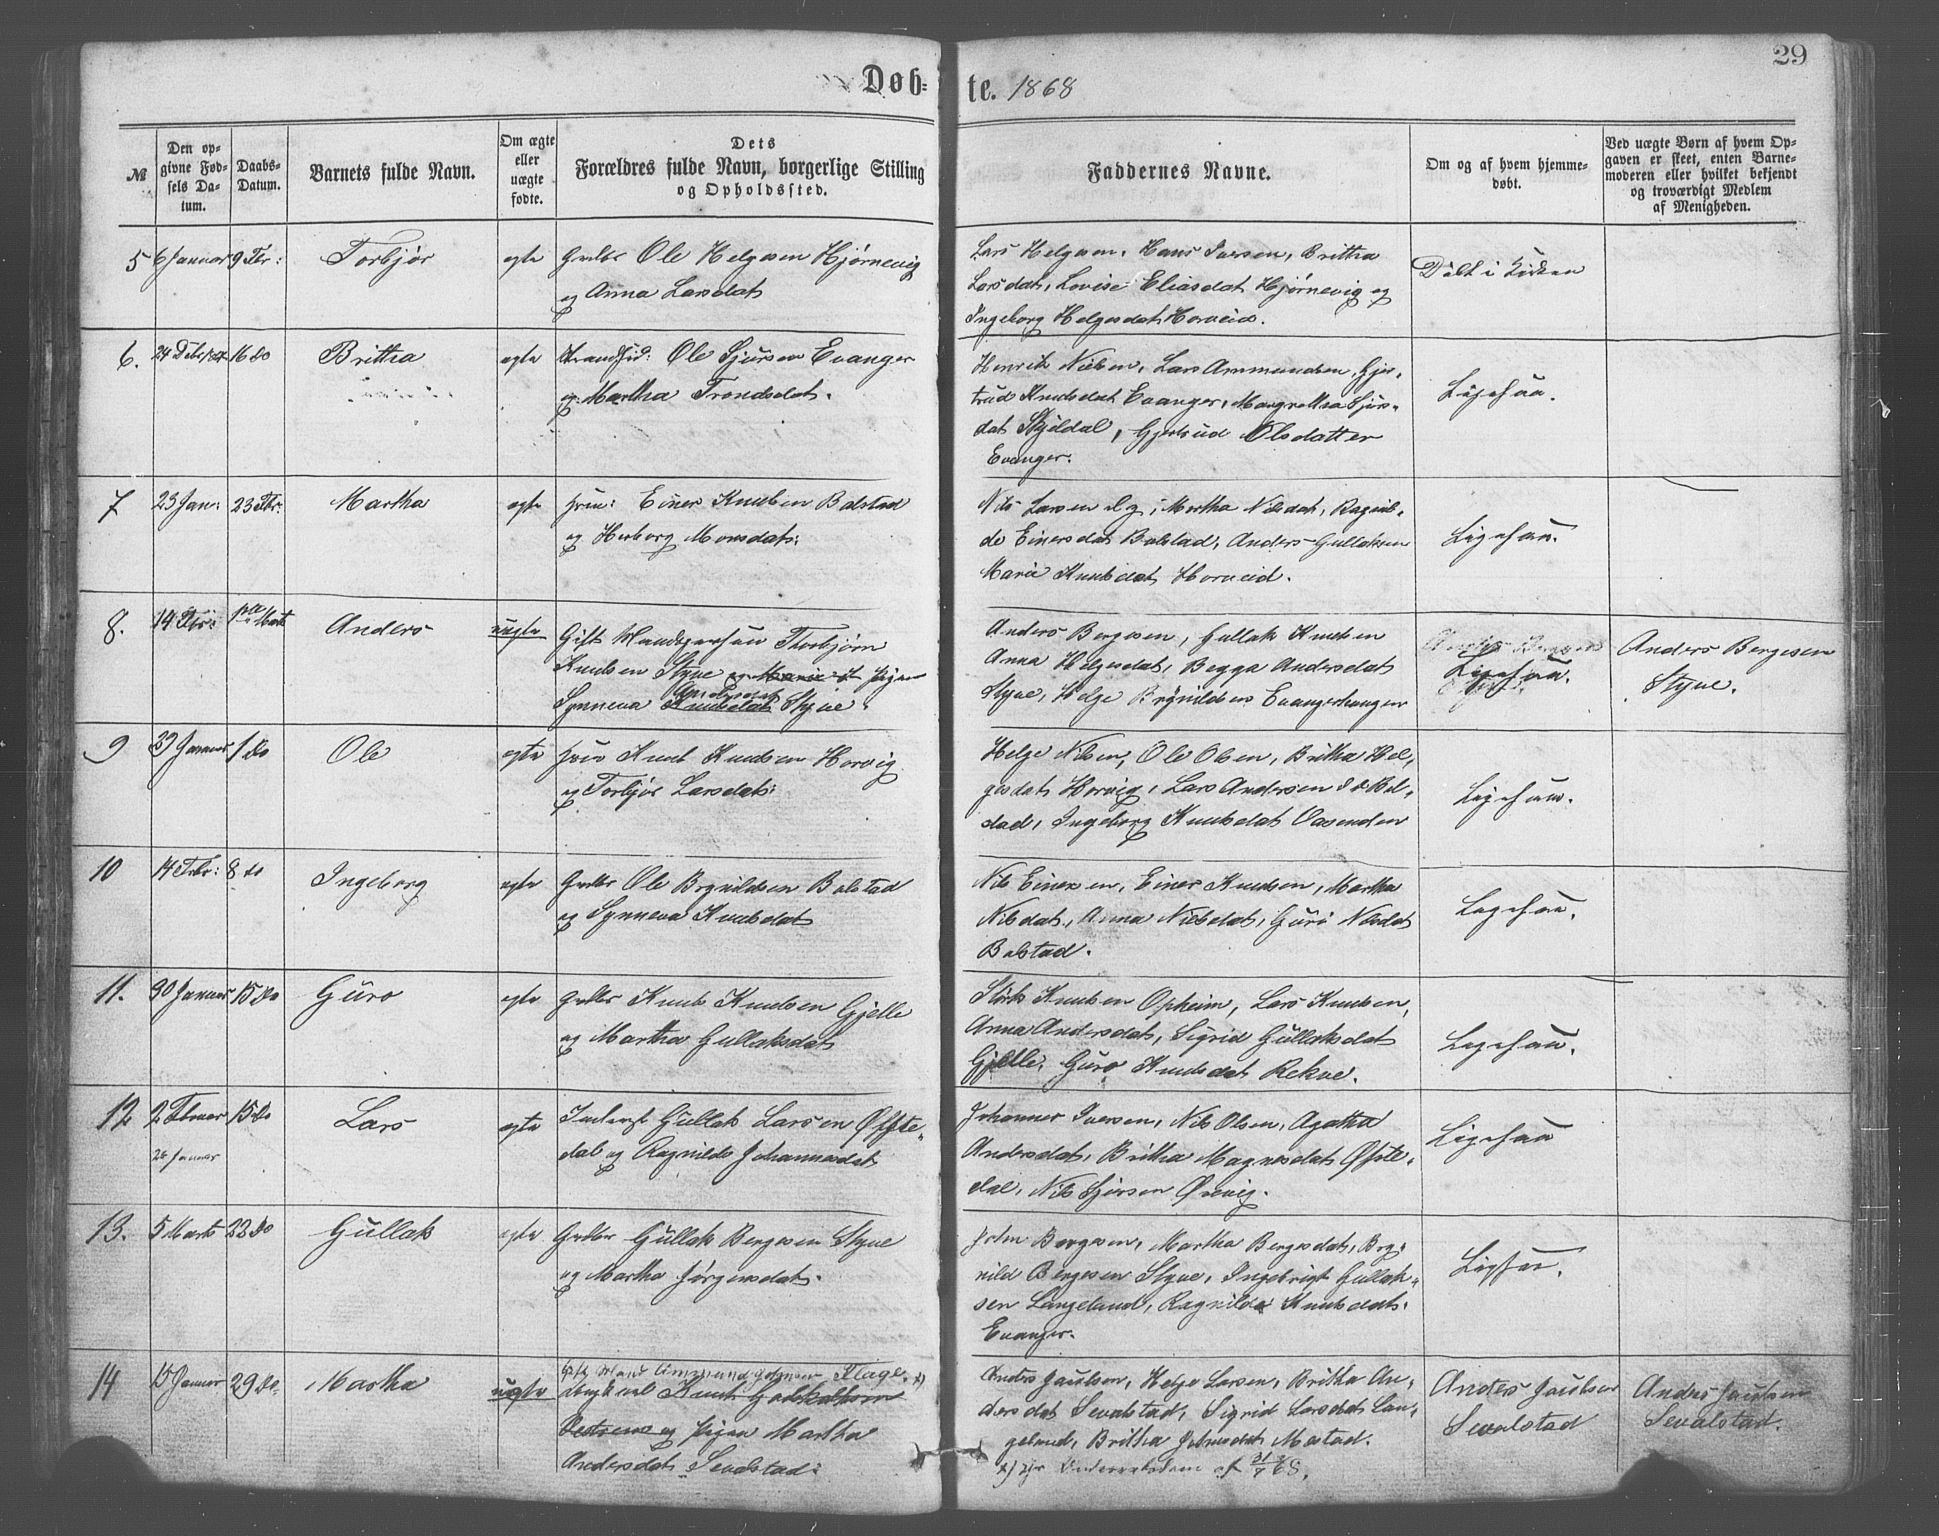 29
Døb= te. 1868
№
Den op-
givne Fød-
sels Da-
tum.
Daabs-
Datum.
Barnets fulde Navn.
Om ægte
eller
uægte
fødte.
Dets
Forældres fulde Navn, borgerlige Stilling
og Opholdssted.
Faddernes Navne.
Om og af hvem hjemme-
døbt.
Ved uægte Børn af hvem Op-
gaven er skeet, enten Barne-
moderen eller hvilket bekjendt
og troværdigt Medlem
af Menigheden.
5 6 Januar 9 Fbr: Torbjør ægte Grdbr Ole Helgesen Hjørnevig
og Anna Larsdat
Lars Helgesen, Hans Iversen, Brittha
Larsdat, Lovise Eliasdat Hjørnevig og
Ingeborg Helgesdat Horveid.
Døbt i Kirken
6. 24 16 do Brittha ægte Strandsid: Ole Sjursen Evanger
og Martha Trondsdat.
Henrik Nielsen, Lars Ammundsen, Gjer-
trud Knudsdat Evanger, Mangretha Sjurs-
dat Skjeldal, Gjertrud Olsdatter
Evanger.
Ligesaa.
7 23 Jan: 23 Fbr. Martha ægte Einer Knudsen Bolstad
og Herborg Monsdat:
Nils Larsen Martha Nilsdat, Ragnil-
de Einersdat Bolstad, Anders Gullaksen
Marie Knudsdat Horveid.
Ligesaa.
8. 14 Fbr: Marts Anders uægte Gift Mandsperson Thorbjørn
Knudsen Styve og Marie Pigen
Synneva Knudsdat Andersdat Styve.
Anders Bergesen, Gullak Knudsen
Anna Helgesdat, Begga Andersdat
Styve, Helge Brynildsen Evangerhaugen
Ligesaa.
Anders Bergesen
Styve.
9 29 Januar 1 do Ole ægte Knut Knudsen Horvig
og Torbjør Larsdat:
Helge Nilsen, Ole Olsen, Britha Hel-
gesdat Horvig, Lars Andersen Bol-
stad, Ingeborg Knudsdat Vasenden
Ligesaa.
10 14 Febr: 8 do Ingeborg ægte Grdbr Ole Brynildsen Bolstad
og Synneva Knudsdat
Nils Einersen, Einer Knudsen, Martha
Nilsdat, Anna Nilsdat, Guro Nilsdat
Bolstad.
Ligesaa.
11. 30 Januar 15 do Guro ægte Grdbr Knud Knudsen Gjelle
og Martha Gullaksdat
Knudsen Opheim, Lars Knudsen,
Anna Andersdat, Sigrid Gullaksdat
Gjelle, Guro Knudsdat Rekve.
Ligesaa.
12 2 Februar 15 do Lars ægte Inderst Gullak Larsen Øfste-
26 Januar
dal og Ragnilde Johannesdat
Johannes Iversen, Nils Olsen, Agatha
Andersdat, Britha Magnesdat Øfste-
dal, Nils Sjursen Ørevig.
Ligesaa
13. 5 Marts 22 do Gullak ægte Grdbr Gullak Bergesen Styve
og Martha Jørgensdat.
John Bergesen, Martha Bergesdat, Bry-
nild Bergesen Styve, Ingebrigt Gullak-
sen Langeland, Ragnilde Knudsdat
Evanger.
Ligesaa.
14 15 Januar 29 do. Martha uægte Gift Mand Ammund Flage. x)
Knut
og Pigen Martha
Andersdat Sevalstad:
Anders Jacobsen, Helge Larsen, Britha An-
dersdat Sevalstad, Sigrid Larsdat Lan-
geland, Britha Johnsdat Mostad.
x) af 31/7 68.
Anders Jacobsen
Sevalstad
Anders Jacobsen
Sevalstad.